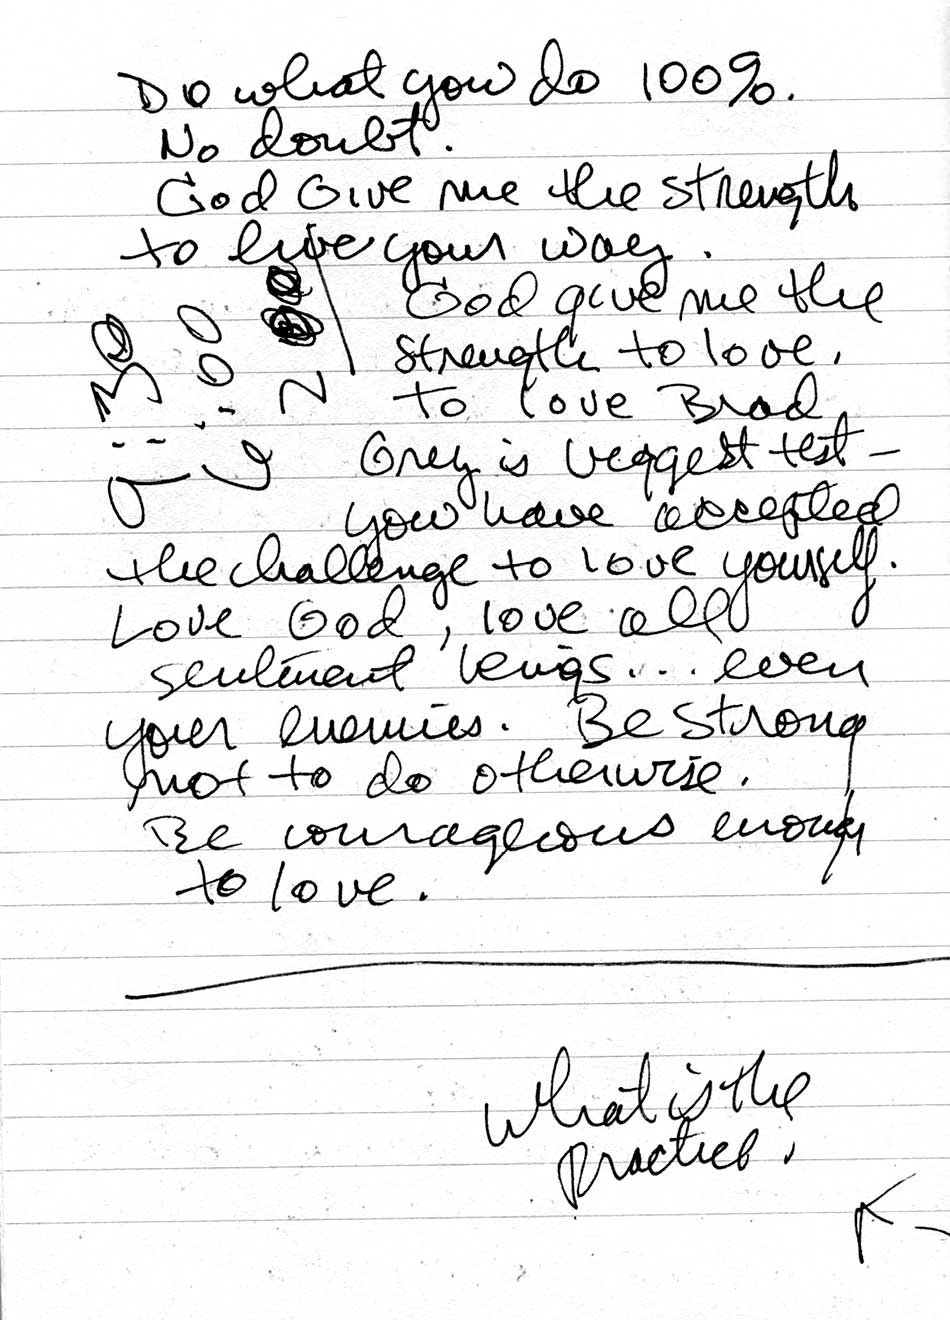 Do what you do 100%.
No doubt.
God Give me the strength
to live your way.
God give me the
strength to love.
to love Brad
Grey is biggest test –
you have accepted
the challenge to love yourself.
Love God, love all
sentinent beings... even
your enemies. Be strong
not to do otherwise.
Be courageous enough
to love.
9:30
6:00
2
What is the
practice.